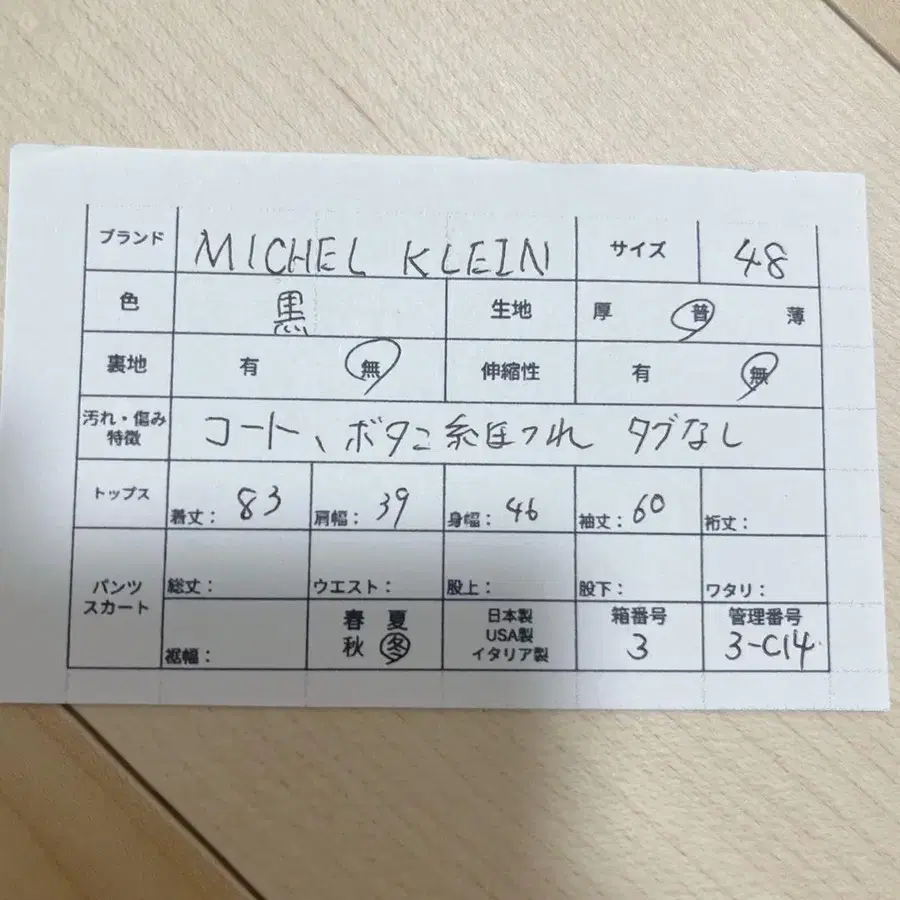 ブランド MICHEL KLEIN サイズ 48
色 黒 生地 厚 普 薄
裏地 有 無 伸縮性 有 無
汚れ・傷み
特徴 コート、ボタン糸ほつれ タグなし
トップス 着丈： 83 肩幅： 39 身幅： 46 袖丈： 60 裄丈：
パンツ
スカート 総丈： ウエスト： 股上： 股下： ワタリ：
裾幅： 春 夏
秋 冬
日本製
USA製
イタリア製
箱番号
3
管理番号
3-C14